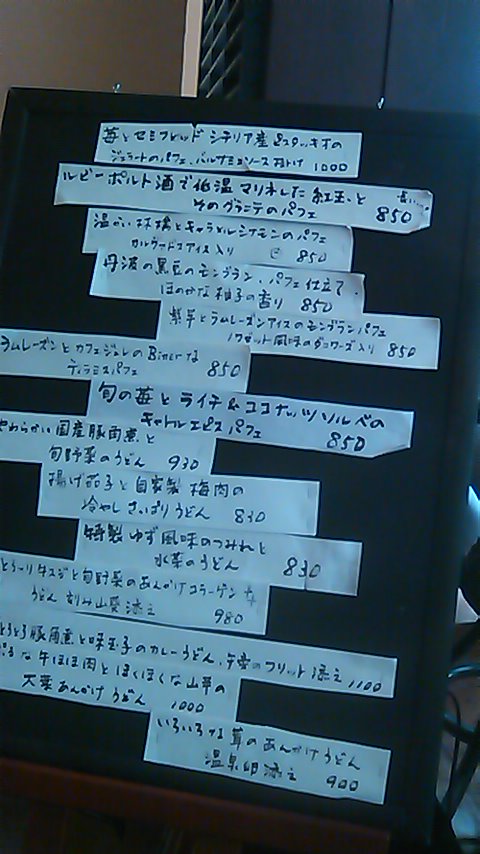 苺とセミフレッド シチリア産ピスタッキオの
ジェラートのパフェ、バルサミコソース掛け 1000
ルビーポルト酒で低温マリネした紅玉と
そのグラニテのパフェ 850
温かい林檎とキャラメルシナモンのパフェ
カルヴァドスアイス入り 850
丹波の黒豆のモンブラン、パフェ仕立て、
ほのかな柚子の香り 850
紫芋とラムレーズンアイスのモンブランパフェ
ノワゼット風味のダコワーズ入り 850
ラムレーズンとカフェジュレのBitterな
ティラミスパフェ 850
旬の苺とライチ&ココナッツソルベの
キャトルエピスパフェ 850
やわらかい国産豚角煮と
旬野菜のうどん 930
揚げ茄子と自家製 梅肉の
冷やし さっぱりうどん 830
特製 ゆず風味のつみれと
水菜のうどん 830
とろーり牛スジと旬野菜のあんかけコラーゲン
うどん 刻み山葵添え 980
とろとろ豚角煮と味玉子のカレーうどん、
のフリット添え 1100
な牛ほほ肉とほくほくな山芋の
大葉あんかけうどん 1000
いろいろな茸のあんかけうどん
温泉卵添え 900